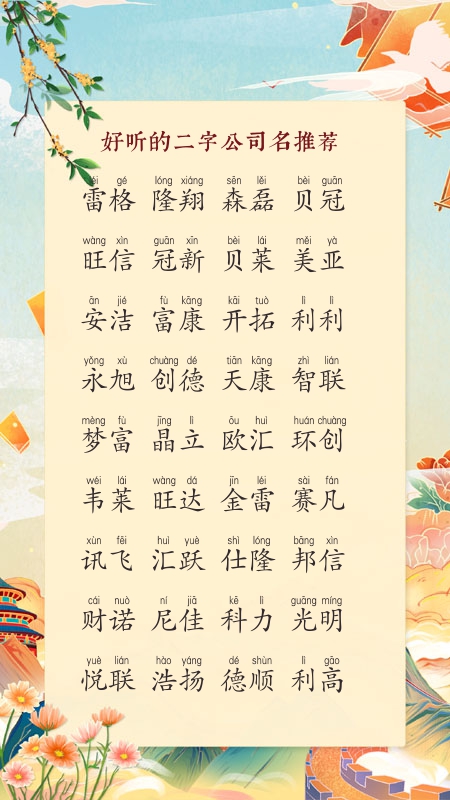 好听的二字公司名推荐
léi gé lóng xiáng sēn lěi bèi guān
雷格 隆翔 森磊 贝冠
wàng xìn guān xīn bèi lái měi yà
旺信 冠新 贝莱 美亚
ān jié fù kāng kāi tuò lì lì
安洁 富康 开拓 利利
yǒng xù chuàng dé tiān kāng zhì lián
永旭 创德 天康 智联
mèng fù jīng lì ōu huì huán chuàng
梦富 晶立 欧汇 环创
wéi lái wàng dá jīn léi sài fán
韦莱 旺达 金雷 赛凡
xùn fēi huì yuè shì lóng bāng xìn
讯飞 汇跃 仕隆 邦信
cái nuò ní jiā kē lì guāng míng
财诺 尼佳 科力 光明
yuè lián hào yáng dé shùn lì gāo
悦联 浩扬 德顺 利高